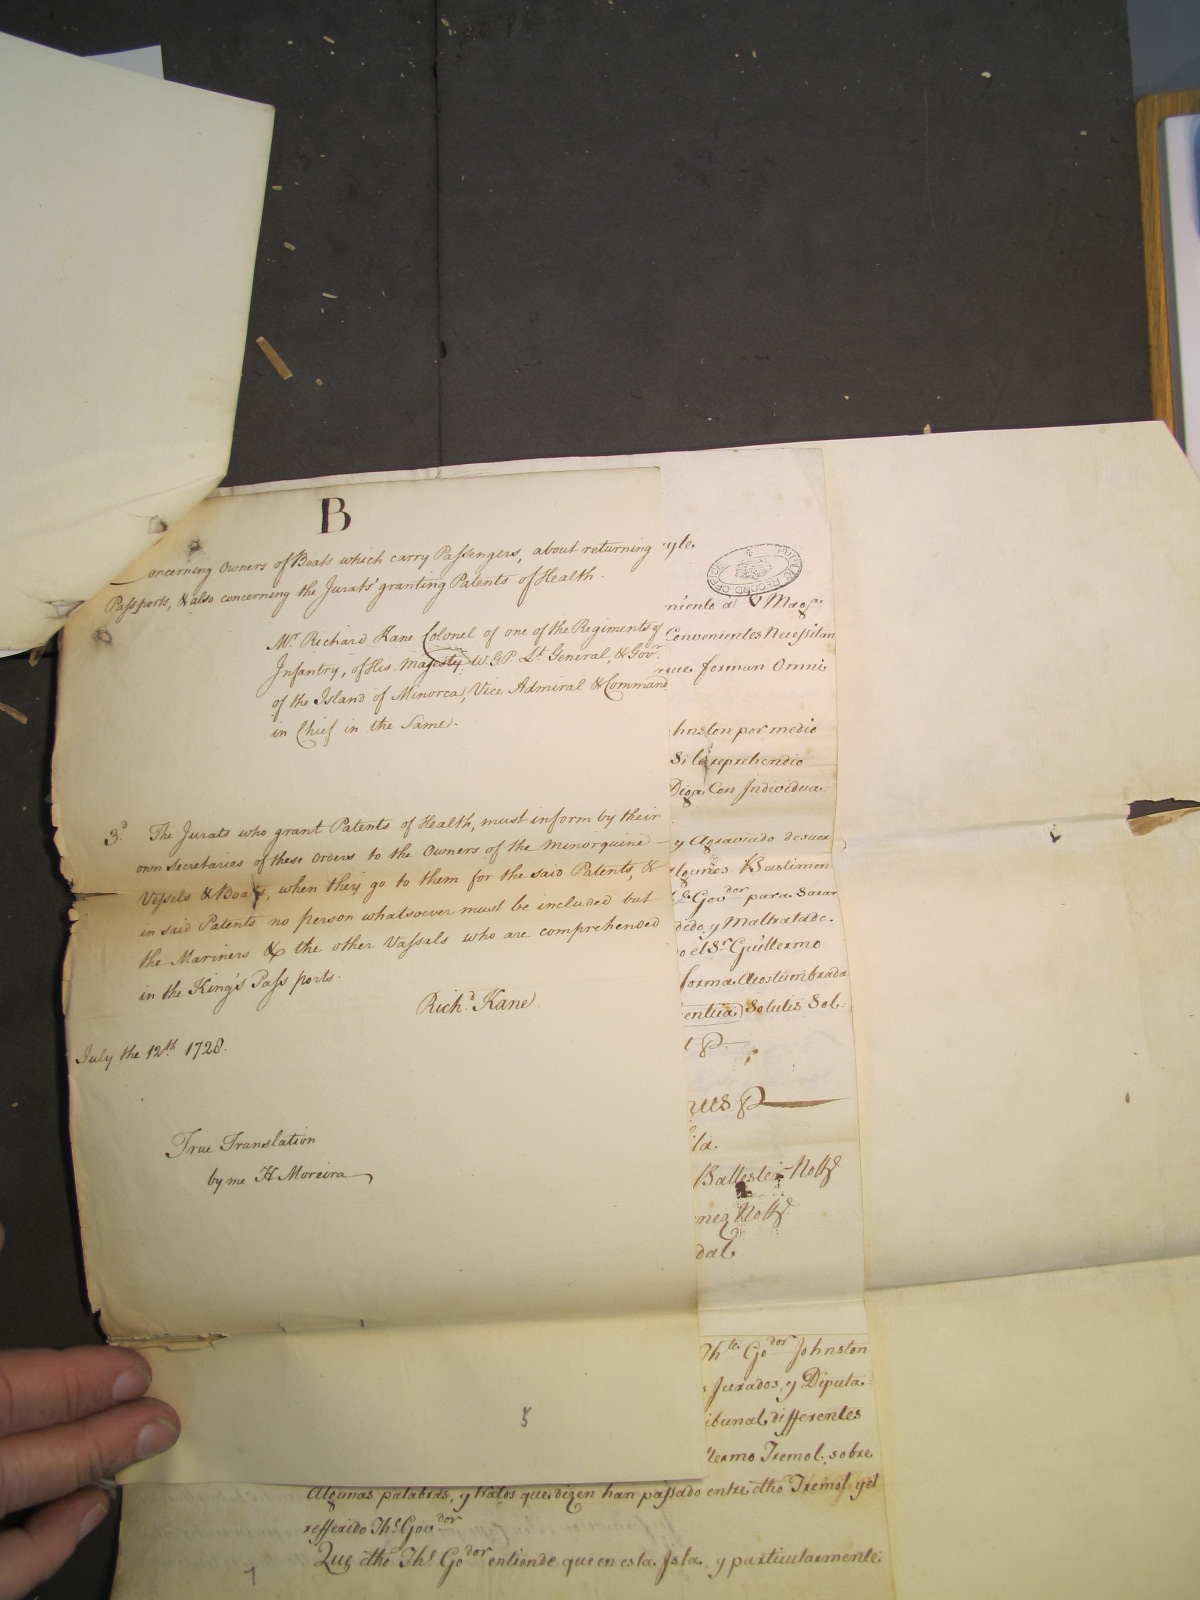 B
Concerning Owners of Boats which carry Passengers, about returning
Passports, & also concerning the Jurats' granting Patents of Health.
Mr. Richard Kane Colonel of one of the Regiments of
Infantry, of His Majesty. Lt. General, & Govr.
of the Island of Minorca, Vice Admiral & Command
in Chief in the Same.
3d. The Jurats who grant Patents of Health, must inform by their
own Secretaries of these Orders to the Owners of the Minorquine
Vessels & Boats, when they go to them for the said Patents, &
in said Patents no person whatsoever must be included but
the Mariners & the other Vassals who are comprehended
in the King's Pass ports.
Richd. Kane
July the 12th 1728.
True Translation
by me H. Moreira
5
PUBLIC RECORD OFFICE
niente a V Magas
Convenientes Necessitan
forman Omni
hnston por medio
Si lo reprehendio
Diga Con Individua
y Agraviado desuer
algunos Bastimen
Govdor para Sacar
dido, y Maltratado.
o el Sr. Guillermo
forma Acostumbrada
entia) Solutis Sol=
Ballester Nottz
nez Nottz
dal
Thte. Godor Johnston
s Jurados, y Diputa=
ibunal differentes
llermo Tremol. sobre
Algunas palabras, y tratos que dizen han passado entre dho Tremol y el
refferido Tht. Govdor
Que dho Tht. Godor entiende que en esta Isla, y particularmente
7